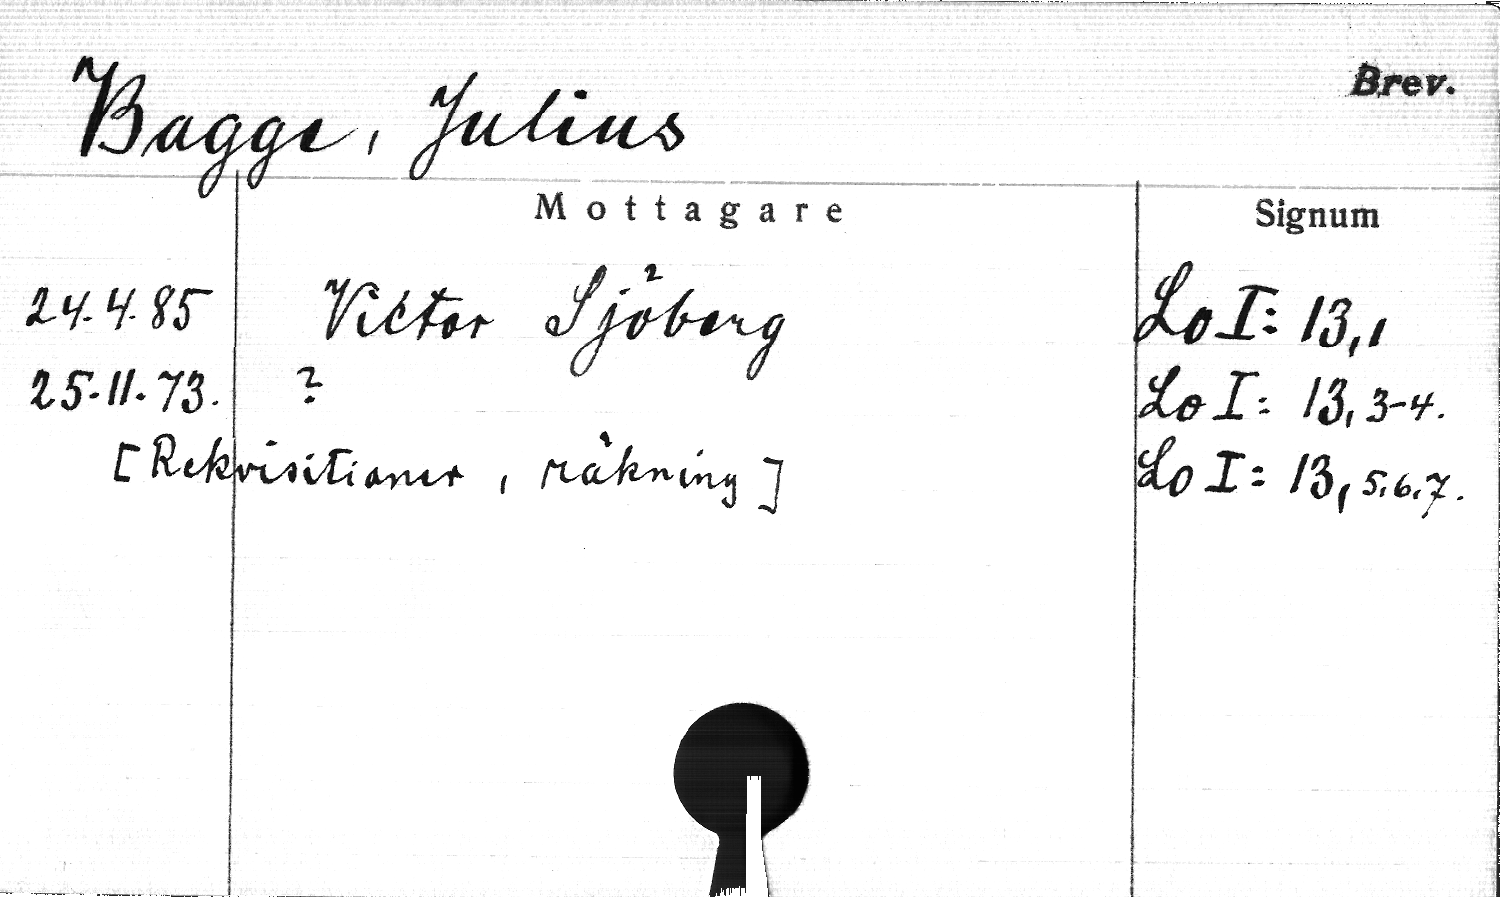 Brev.
Bagge, Julius
Mottagare Signum
24.4.85 Victor Sjöberg Lo I: 13,1
25.11.73. ? Lo I: 13, 3-4.
[Rekvisitioner, räkning] Lo I: 13, 5.6.7.